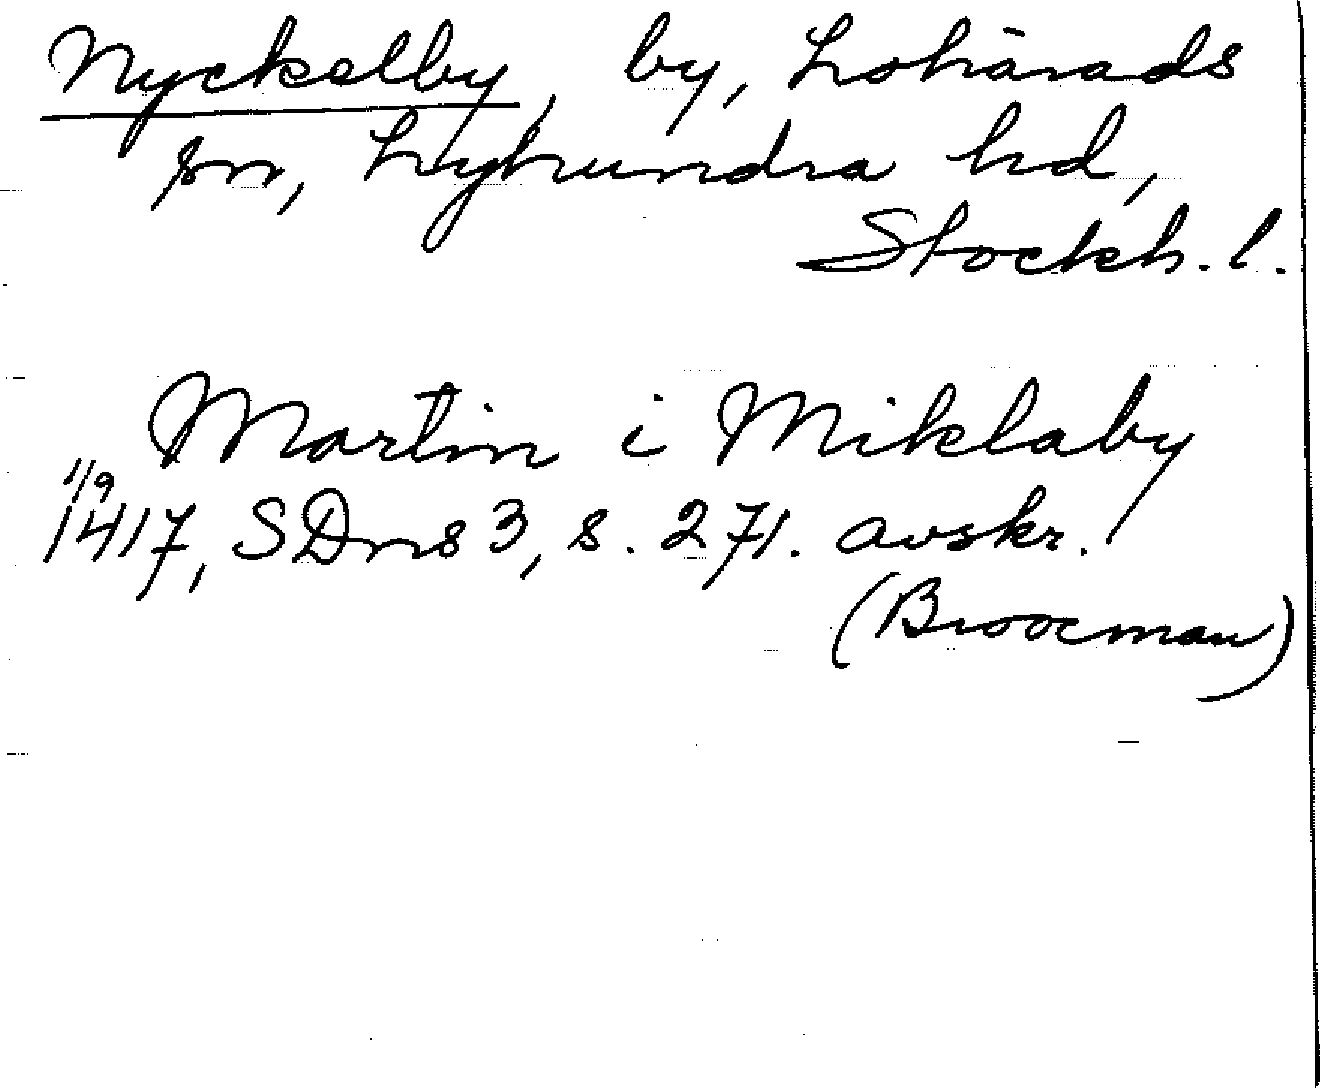 Nyckelby, by, Lohärads
sn, Lyhundra hd,
Stockh. l.
Martin i Miklaby
1/9
1417, SDns 3, s. 271. avskr.
(Broocman)